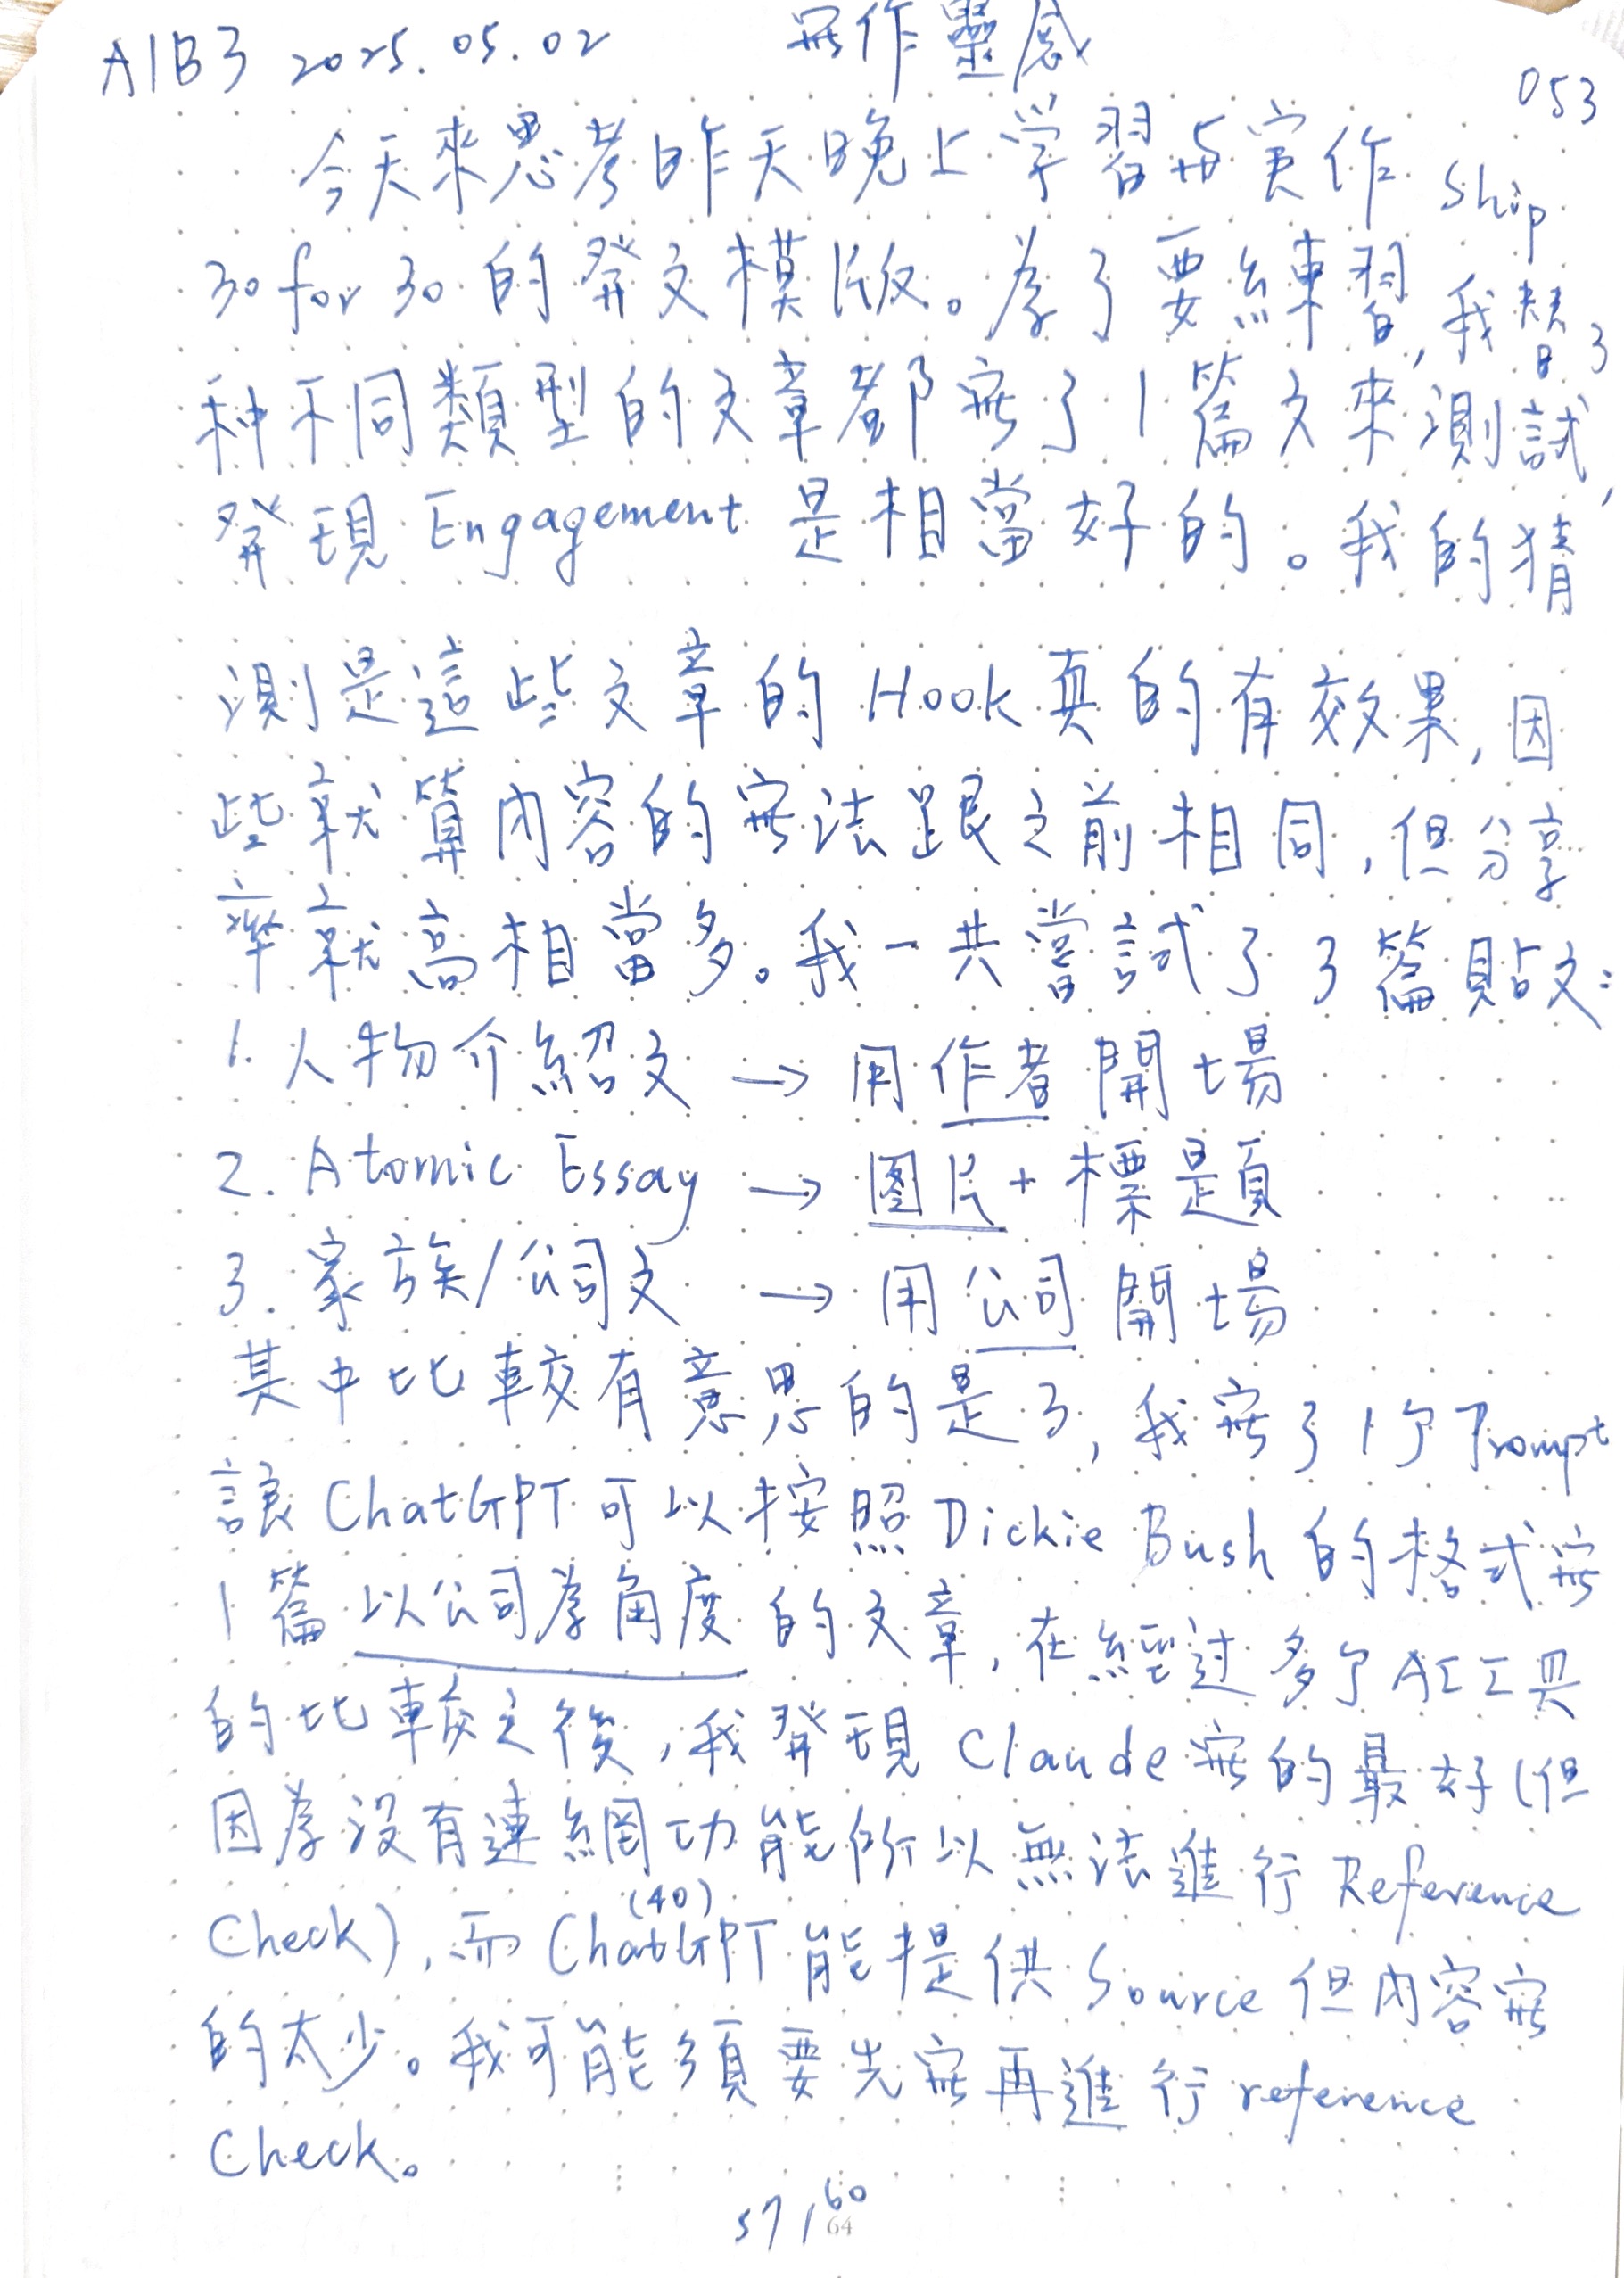 A1B3 2025.05.02 寫作靈感 053
今天來思考昨天晚上学習与実作 Ship
30 for 30 的發文模版。為了要練習,我替3
种不同類型的文章都寫了1篇文來測試,
發現 Engagement 是相當好的。我的猜
測是這些文章的 Hook 真的有效果,因
此就算內容的寫法跟之前相同,但分享
率就高相當多。我一共嘗試了3篇貼文:
1. 人物介紹文 → 用作者開場
2. Atomic Essay → 图片+標題
3. 家族/公司文 → 用公司開場
其中比較有意思的是3,我寫了1个Prompt
讓 ChatGPT 可以按照 Dickie Bush 的格式寫
1篇以公司為角度的文章,在經过多个AI工具
的比較之後,我發現 Claude 寫的最好(但
因為沒有連網功能所以無法進行 Reference
Check),而 ChatGPT (4o) 能提供 Source 但內容寫
的太少。我可能須要先寫再進行 reference
Check。
57/60
64